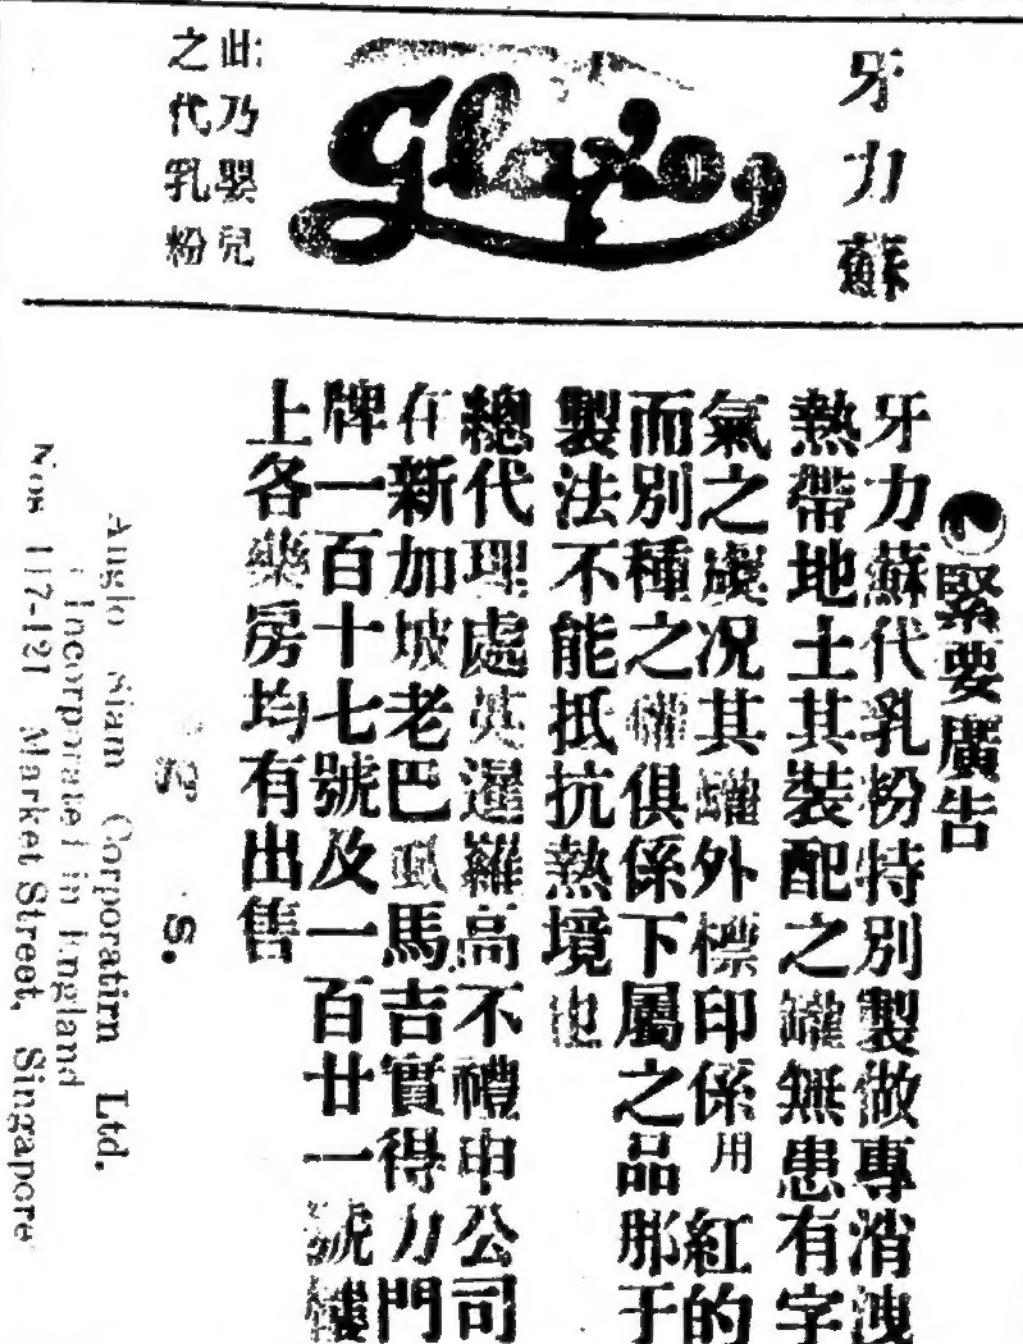 牙力蘇
Glaxo
此乃嬰兒
之代乳粉
緊要廣告
牙力蘇代乳粉特別製做專消洩
熱帶地土其裝配之罐無患有字
氣之處况其罐外標印係用紅的
而別種之罐俱係下屬之品那于
製法不能抵抗熱境也
總代理處英暹羅高不禮申公司
在新加坡老巴虱馬吉實得力門
牌一百十七號及一百廿一號樓
上各藥房均有出售
S.
Anglo Siam Corporatirn Ltd.
Incorporated in England
Nos 117-121 Market Street, Singapore